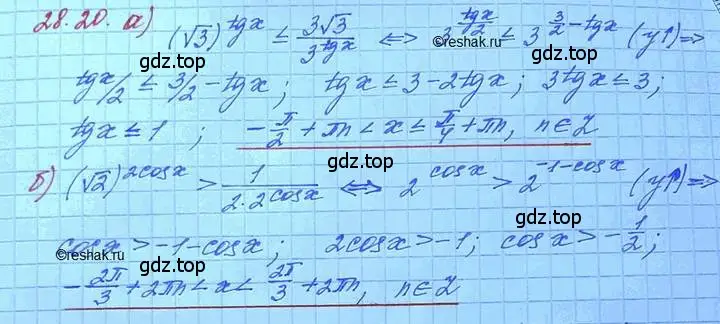 28.20. а) (√3)^tgx ≤ 3√3/3^tgx ⇔ 3^(tgx/2) ≤ 3^(3/2 - tgx) (y↑) ⇒
©reshak.ru
gdz.top
tgx/2 ≤ 3/2 - tgx ; tgx ≤ 3 - 2tgx ; 3tgx ≤ 3 ;
tgx ≤ 1 ; -π/2 + πn < x ≤ π/4 + πn, n ∈ Z
gdz.top
б) (√2)^2cosx > 1/(2·2^cosx) ⇔ 2^cosx > 2^(-1-cosx) (y↑) ⇒
gdz.top
gdz.top
cosx > -1 - cosx ; 2cosx > -1 ; cosx > -1/2 ;
©reshak.ru
gdz.top
-2π/3 + 2πn < x < 2π/3 + 2πn, n ∈ Z
gdz.top